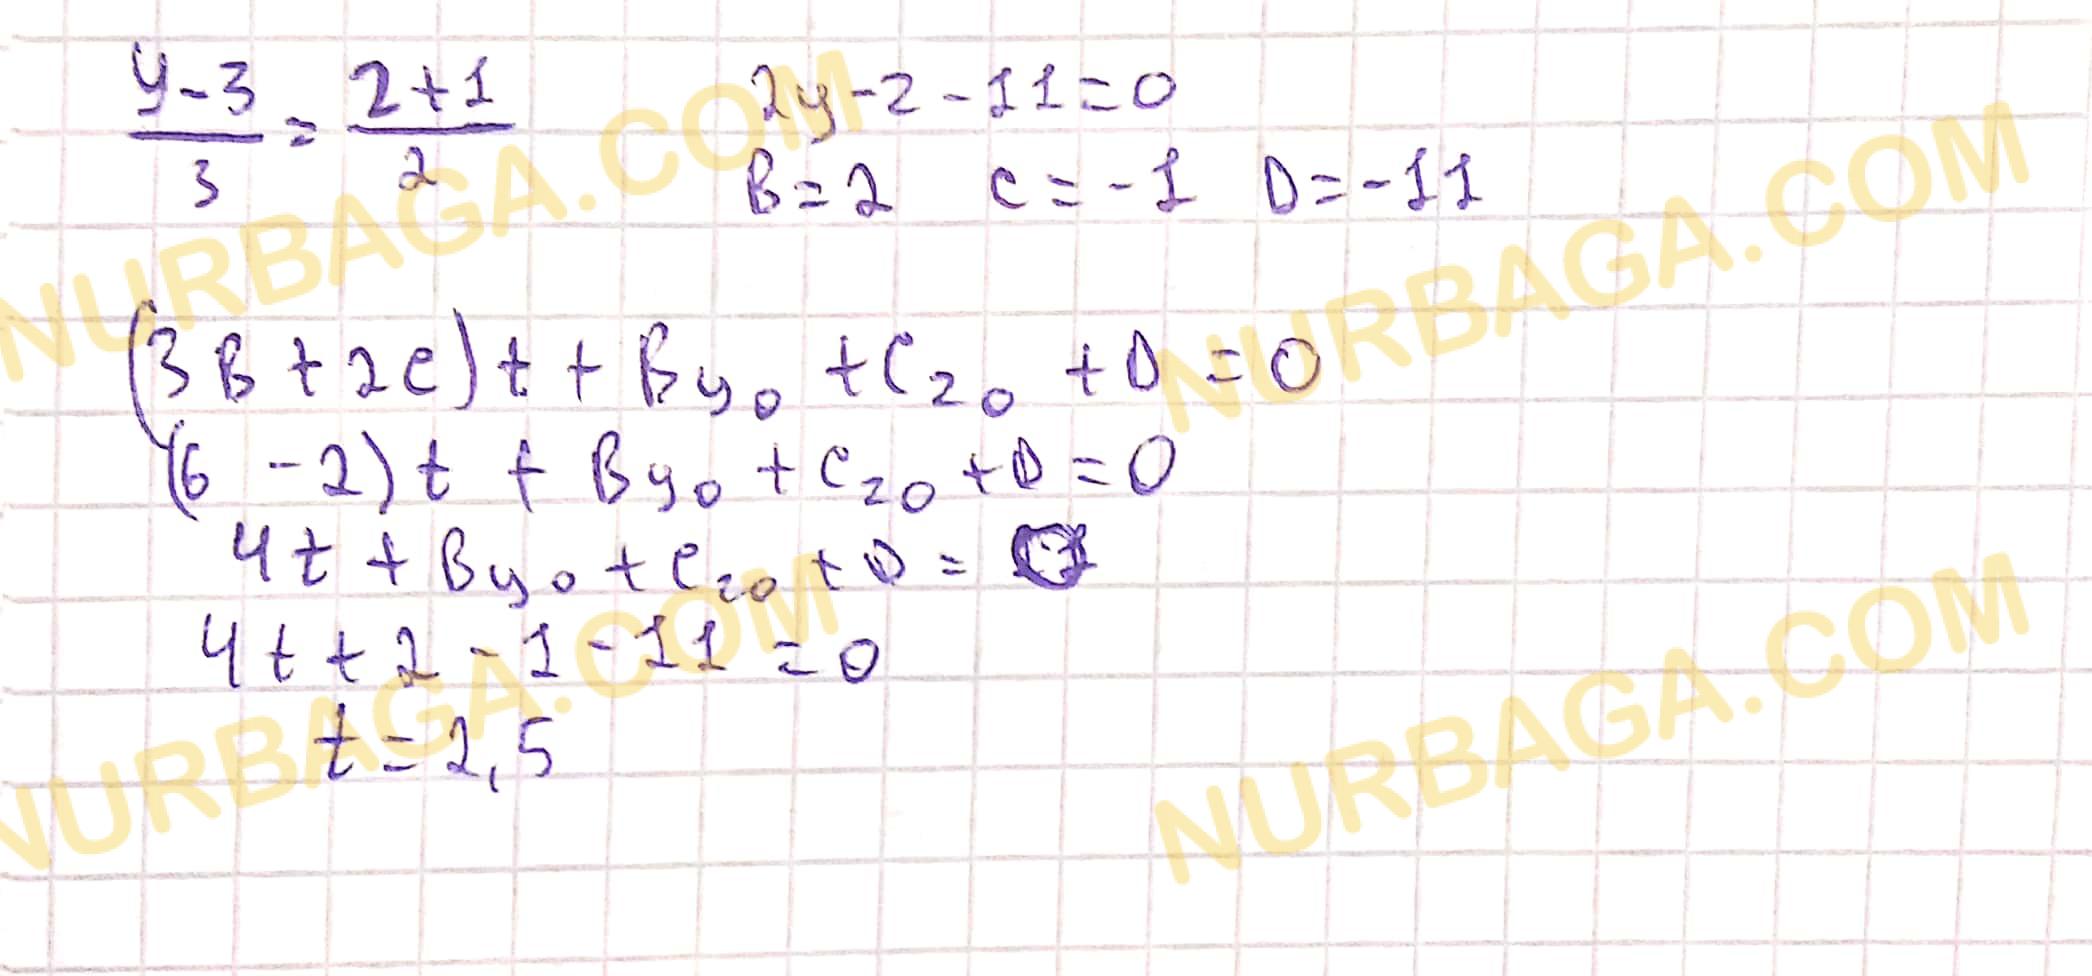 y-3/3 = 2+1/2
2y-2-11=0
B=2 C=-1 D=-11
(3B+2C)t+By₀+C₂₀+D=0
(6-2)t+By₀+C₂₀+D=0
4t+By₀+C₂₀+D=
4t+2-1-11=0
t=2,5
NURBAGA.COM
NURBAGA.COM
NURBAGA.COM
NURBAGA.COM